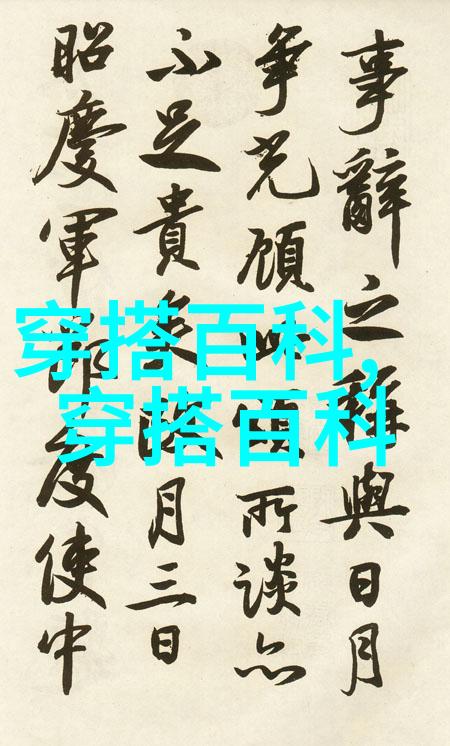 事辭之與日月
爭光所談亦
不足貴矣月三日
昭慶軍節度使中
穿搭百科,
穿搭百科